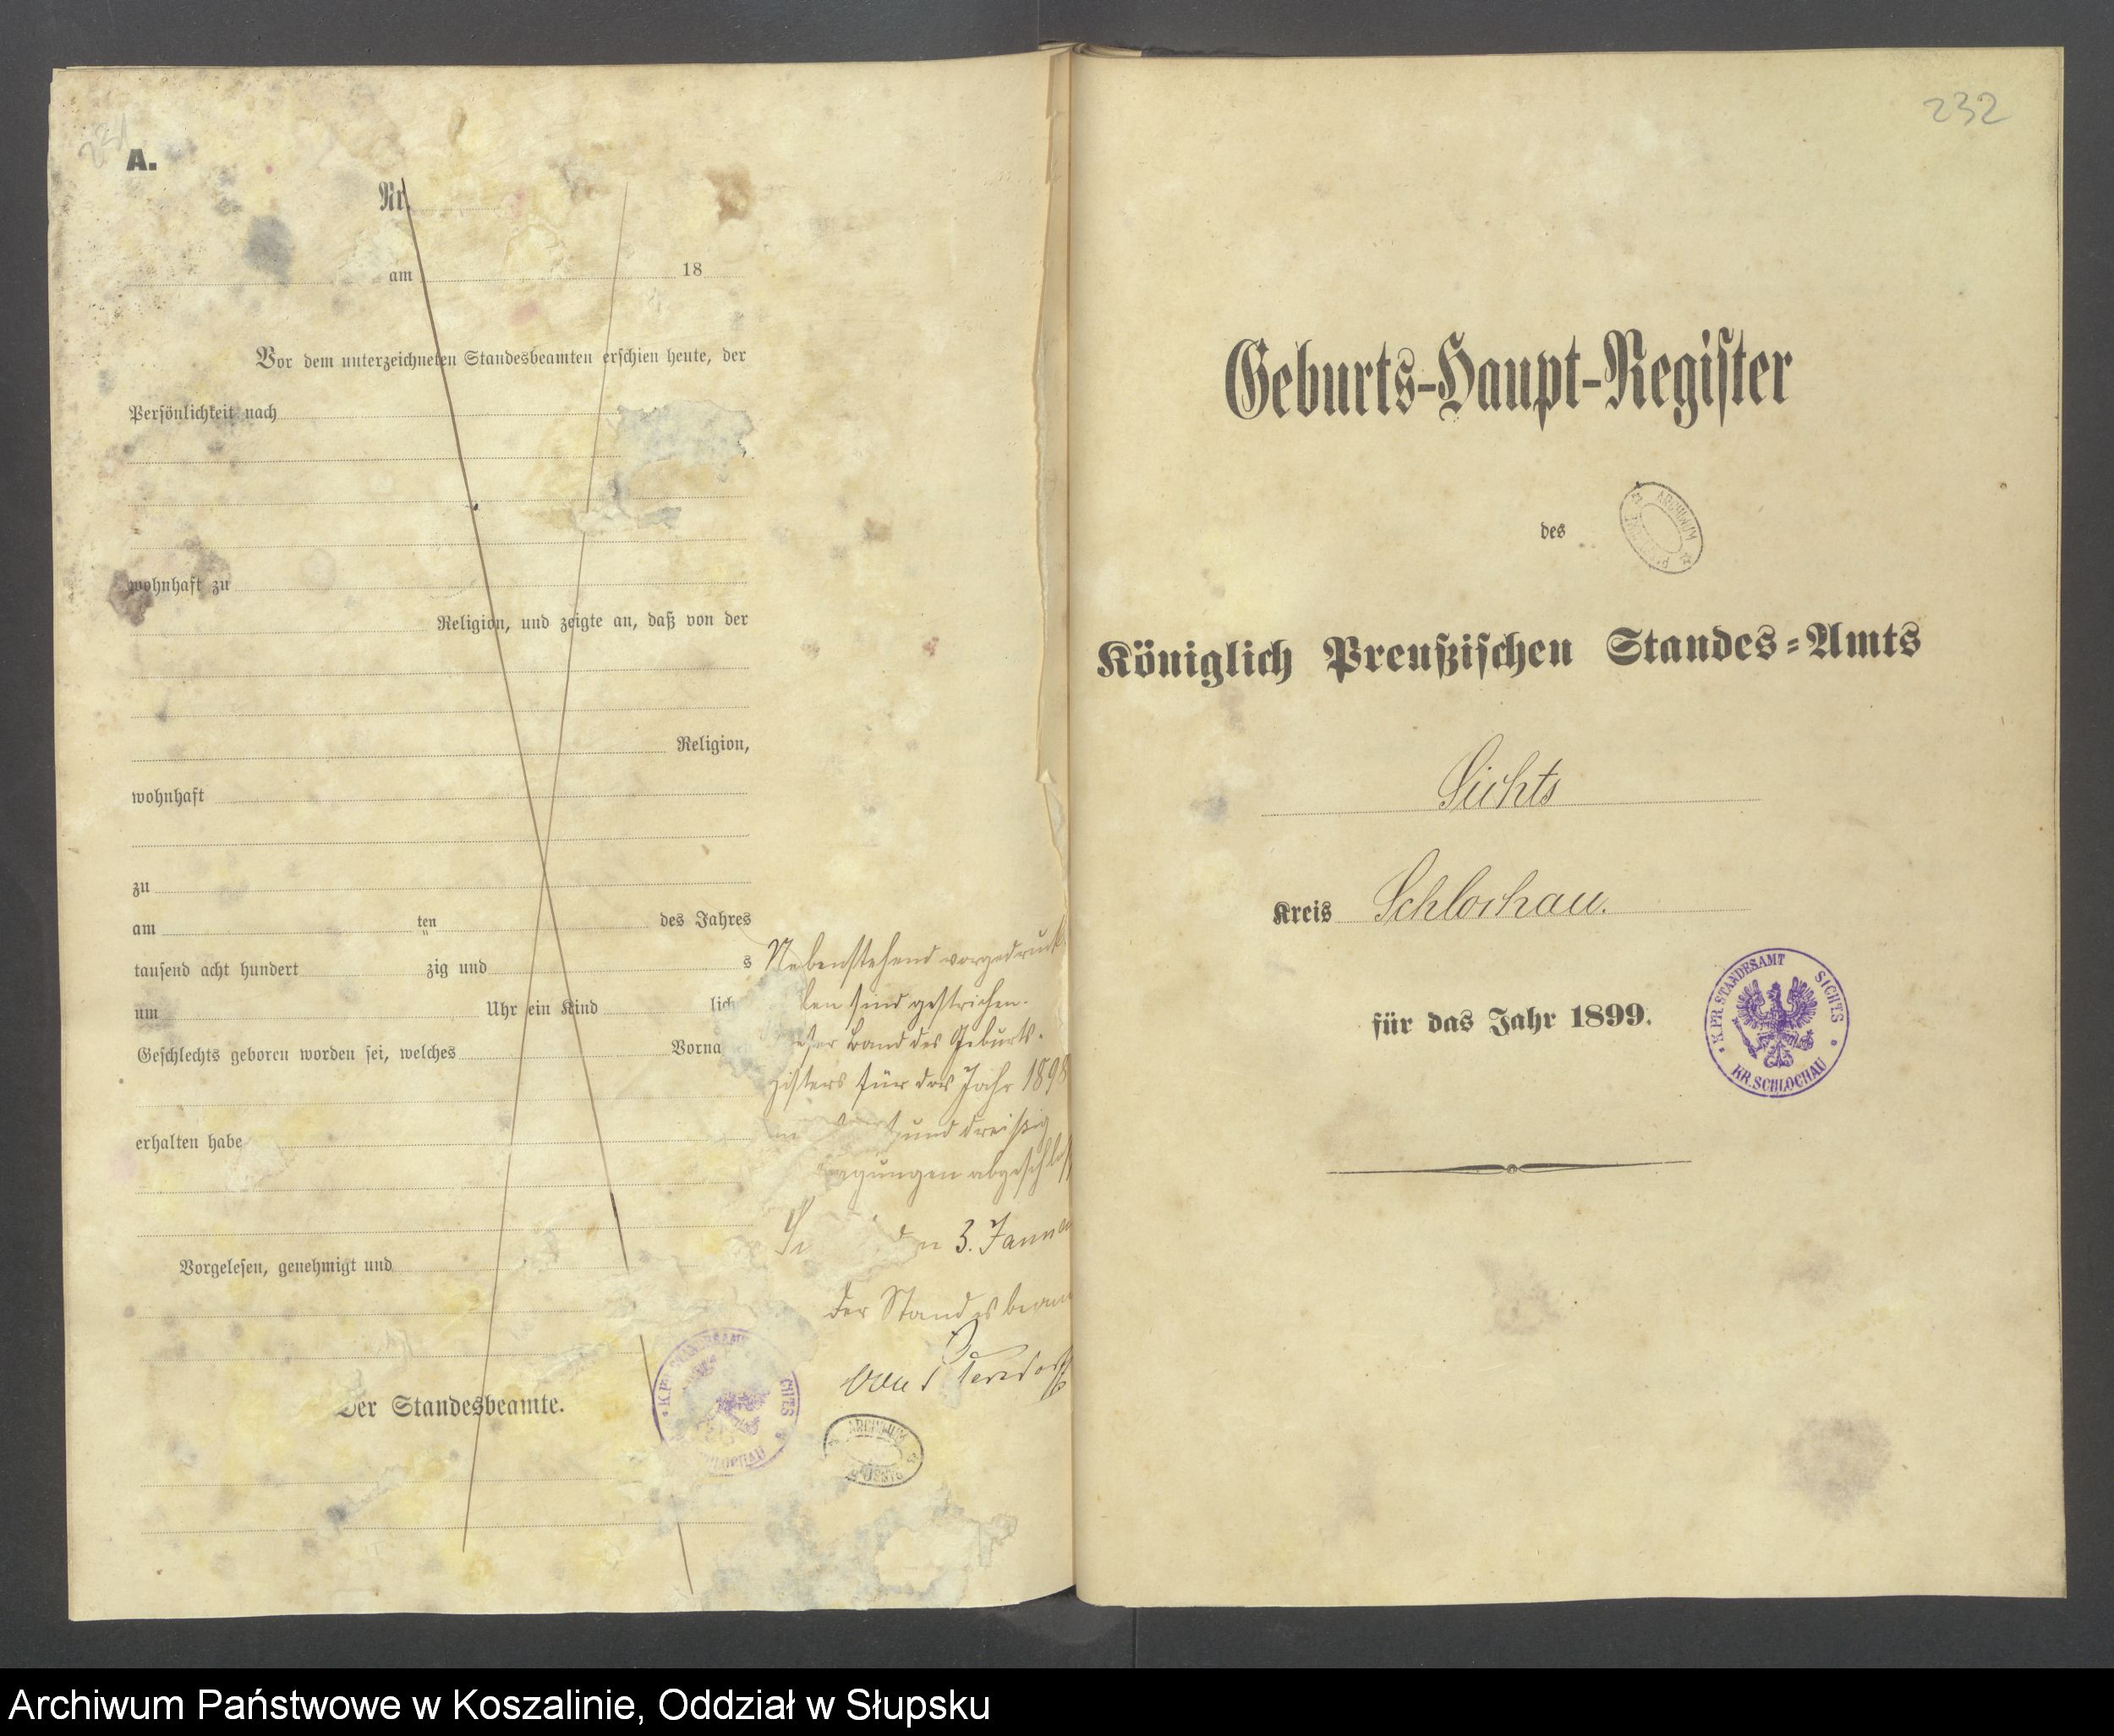 A.
Nr.
am 18
Vor dem unterzeichneten Standesbeamten erschien heute, der
Persönlichkeit nach
,
wohnhaft zu
Religion, und zeigte an, daß von der
Religion,
wohnhaft
zu
am ten des Jahres
tausend acht hundert zig und s
um Uhr ein Kind lich
Geschlechts geboren worden sei, welches Vorna
erhalten habe
Vorgelesen, genehmigt und
Der Standesbeamte.
Nebenstehend vorgedruck
len sind gestrichen.
Band des Geburts-
gisters für das Jahr 1898
und dreißig
gungen abgeschlos
3. Janua
Der Standesbeam
von
CHTS
ARCHIWUM
232
Geburts-Haupt-Register
des
ARCHIWUM
Königlich Preußischen Standes-Amts
Sichts
Kreis Schlochau.
für das Jahr 1899.
K.PR.STANDESAMT SICHTS
KR.SCHLOCHAU
Archiwum Państwowe w Koszalinie, Oddział w Słupsku